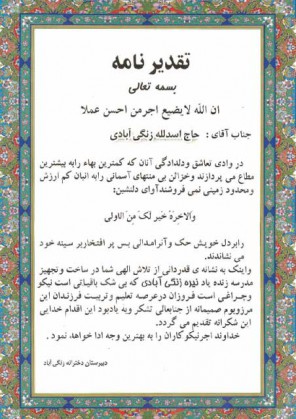 تقدیر نامه
بسمه تعالی
ان الله لایضیع اجر من احسن عملا
جناب آقای : حاج اسدلله زنگی آبادی
در وادی تعاشق ودلدادگی آنان که کمترین بهاء رابه پیشترین
مطاع می پردازند وخزائن بی منتهای آسمانی رابه انبان کم ارزش
ومحدود زمینی نمی فروشندآوای دلنشین:
وَالاخِرهُ خَیر لَکَ مِن الاُولی
رابردل خویش حک وآنرامدالی بس پر افتخاربر سینه خود
می نشاندند.
واینک به نشانه ی قدردانی از تلاش الهی شما در ساخت وتجهیز
مدرسه زنده یاد نیزه زنگی آبادی که بی شک باقیاتی است نیکو
وچراغی است فروزان درعرصه تعلیم وتربیت فرزندان این
مرزوبوم صمیمانه از جنابعالی تشکر وبه یادبود این اقدام خدایی
این شکرانه تقدیم می گردد.
خداوند اجرنیکوکاران را به بهترین وجه ادا خواهد نمود .
دبیرستان دخترانه زنگی آباد